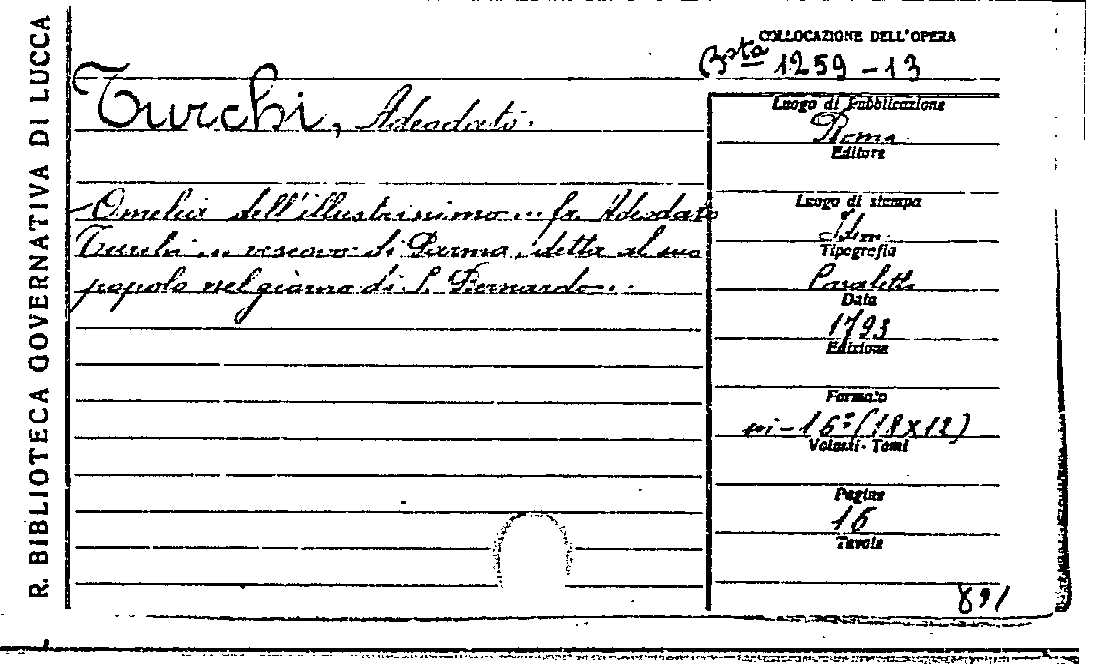 R. BIBLIOTECA GOVERNATIVA DI LUCCA
COLLOCAZIONE DELL'OPERA
Bsta 1259-13
Turchi, Adeodato.
Omelia dell'illustrissimo... fr. Adeodato
Turchi... vescovo di Parma, detta al suo
popolo nel giorno di S. Bernardo...
Luogo di Pubblicazione
Roma
Editore
Luogo di stampa
Idem
Tipografia
Data
1793
Edizione
Formato
in-16° (18x12)
Volumi - Tomi
Pagine
16
Tavole
891